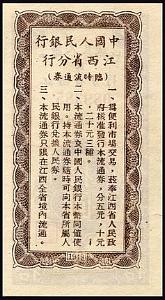 中國人民銀行
江西省分行
(臨時流通券)
一、為便利市場交易，茲奉江西省人民政
府核准發行本流通券，分五元，十元
二十元三種。
二、本流通券與中國人民銀行本幣同值使
用。持本流通券隨時可向本省所屬人
民銀行兌換人民券。
三、本流通券只限在江西全省境內流通。